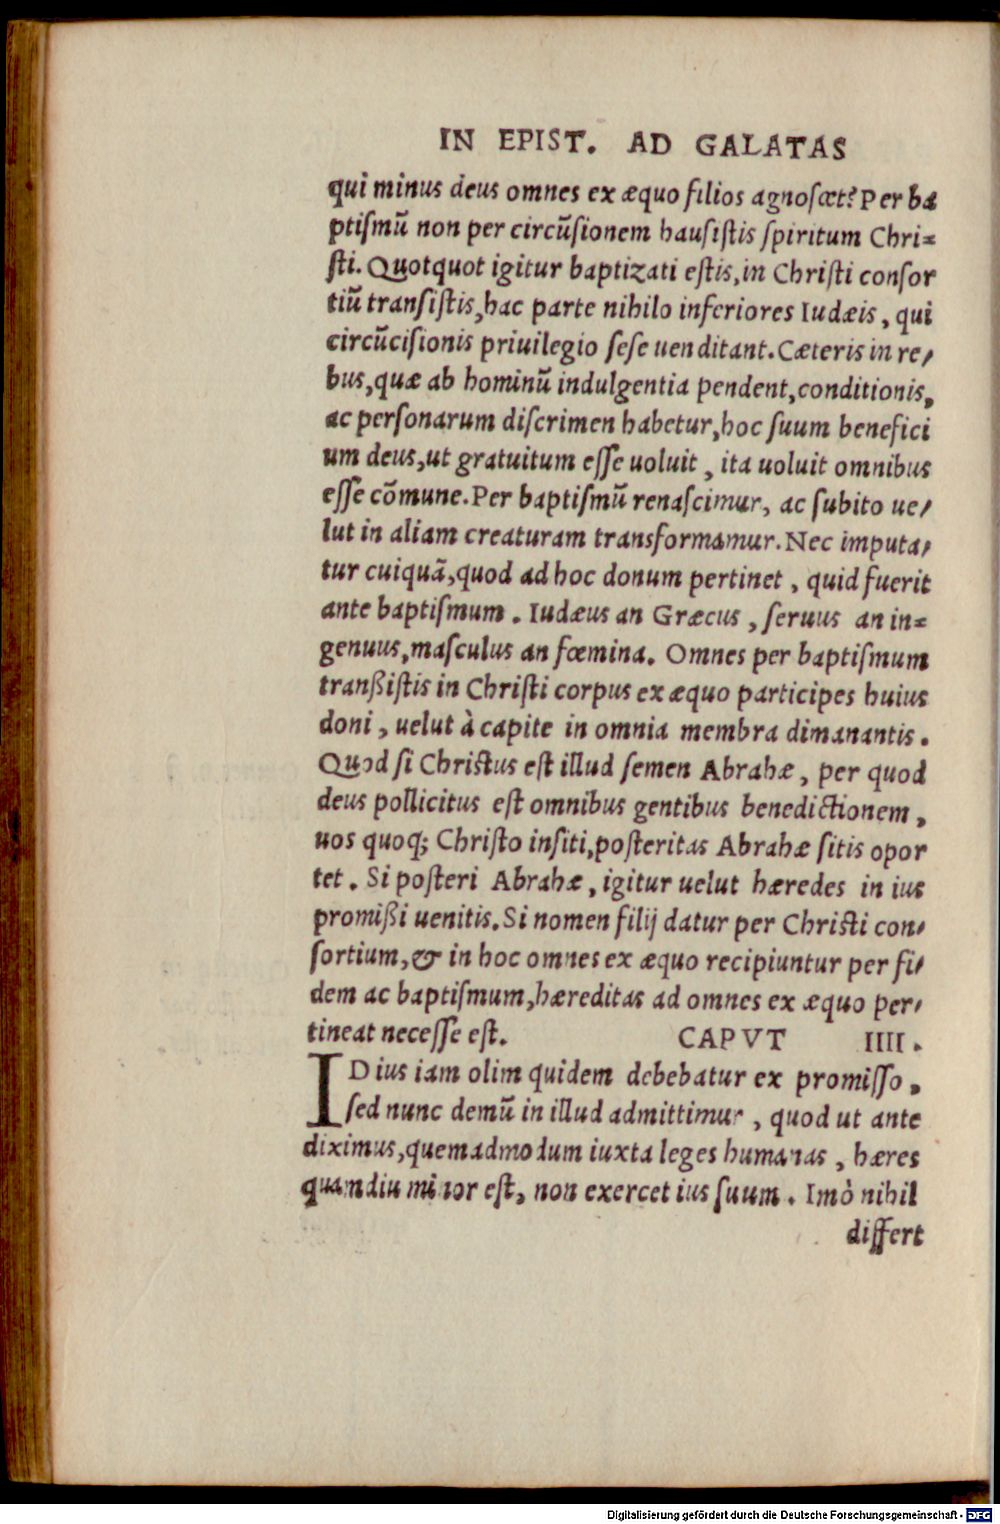 IN EPIST. AD GALATAS
qui minus deus omnes ex æquo filios agnoſcet? Per ba
ptiſmũ non per circũſionem hauſiſtis ſpiritum Chri=
ſti. Quotquot igitur baptizati eſtis, in Chriſti conſor
tiũ tranſiſtis, hac parte nihilo inferiores Iudæis, qui
circũciſionis priuilegio ſeſe uenditant. Cæteris in re/
bus, quæ ab hominũ indulgentia pendent, conditionis,
ac perſonarum diſcrimen habetur, hoc ſuum benefici
um deus, ut gratuitum eſſe uoluit, ita uoluit omnibus
eſſe cõmune. Per baptiſmũ renaſcimur, ac ſubito ue/
lut in aliam creaturam transformamur. Nec imputa/
tur cuiquã, quod ad hoc donum pertinet, quid fuerit
ante baptiſmum. Iudæus an Græcus, ſeruus an in=
genuus, maſculus an fœmina. Omnes per baptiſmum
tranßiſtis in Chriſti corpus ex æquo participes huius
doni, uelut à capite in omnia membra dimanantis.
Quod ſi Chriſtus eſt illud ſemen Abrahæ, per quod
deus pollicitus eſt omnibus gentibus benedictionem,
uos quoq; Chriſto inſiti, poſteritas Abrahæ ſitis opor
tet. Si poſteri Abrahæ, igitur uelut hæredes in ius
promißi uenitis. Si nomen filij datur per Chriſti con/
ſortium, & in hoc omnes ex æquo recipiuntur per fi/
dem ac baptiſmum, hæreditas ad omnes ex æquo per/
tineat neceſſe eſt. CAPVT IIII.
ID ius iam olim quidem debebatur ex promiſſo,
ſed nunc demũ in illud admittimur, quod ut ante
diximus, quemadmodum iuxta leges humanas, hæres
quamdiu minor eſt, non exercet ius ſuum. Imò nihil
differt
Digitalisierung gefördert durch die Deutsche Forschungsgemeinschaft - DFG